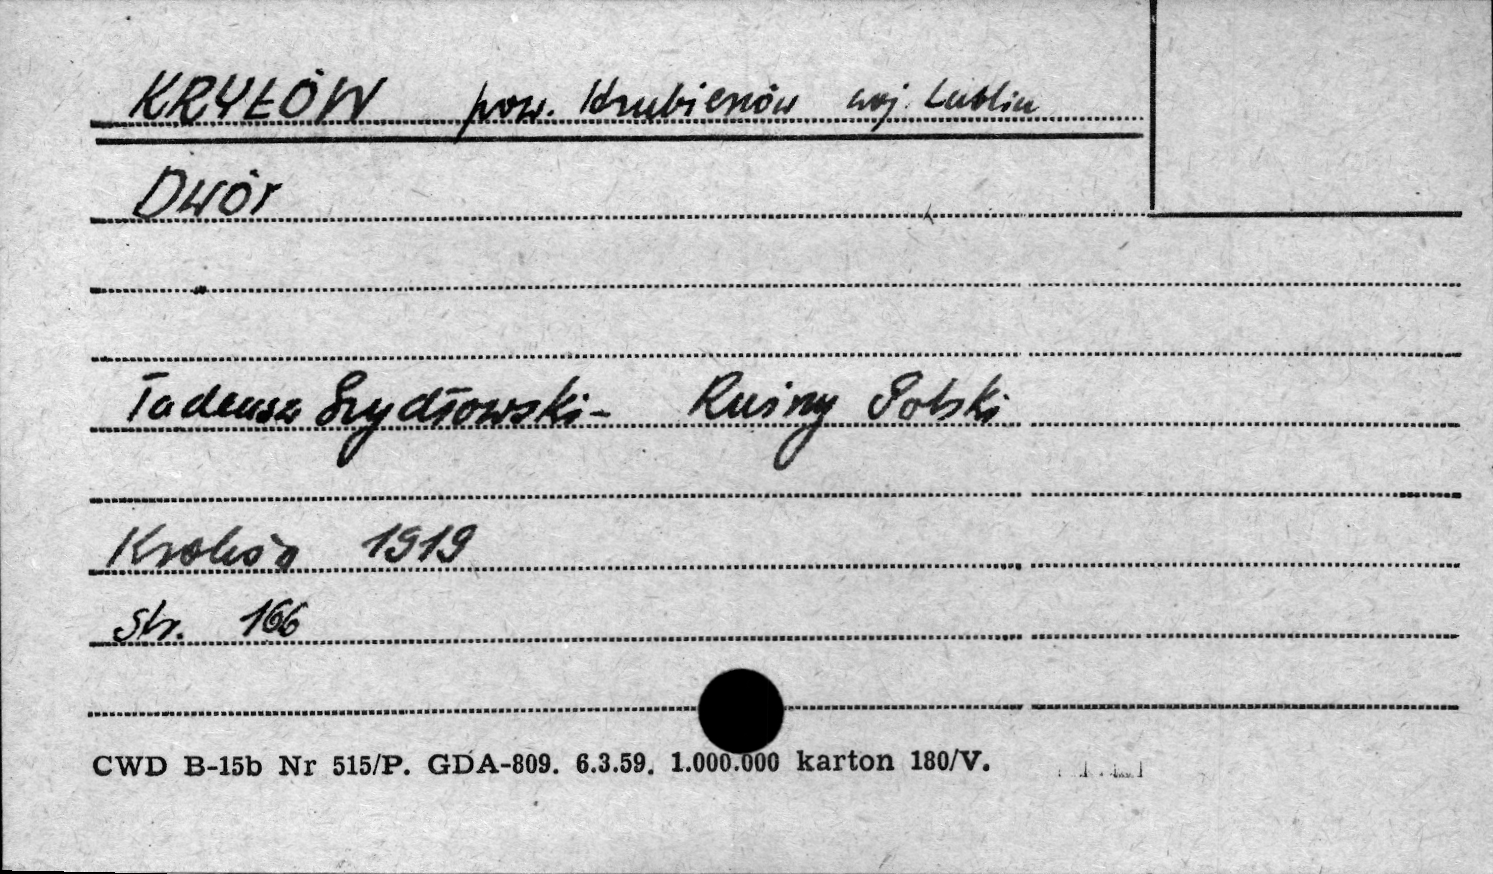 KRYŁÓW pow. Hrubieszów woj. Lublin
Dwór
Tadeusz Szydłowski - Ruiny Polski
Kraków 1919
str. 166
CWD B-15b Nr 515/P. GDA-809. 6.3.59. 1.000.000 karton 180/V.